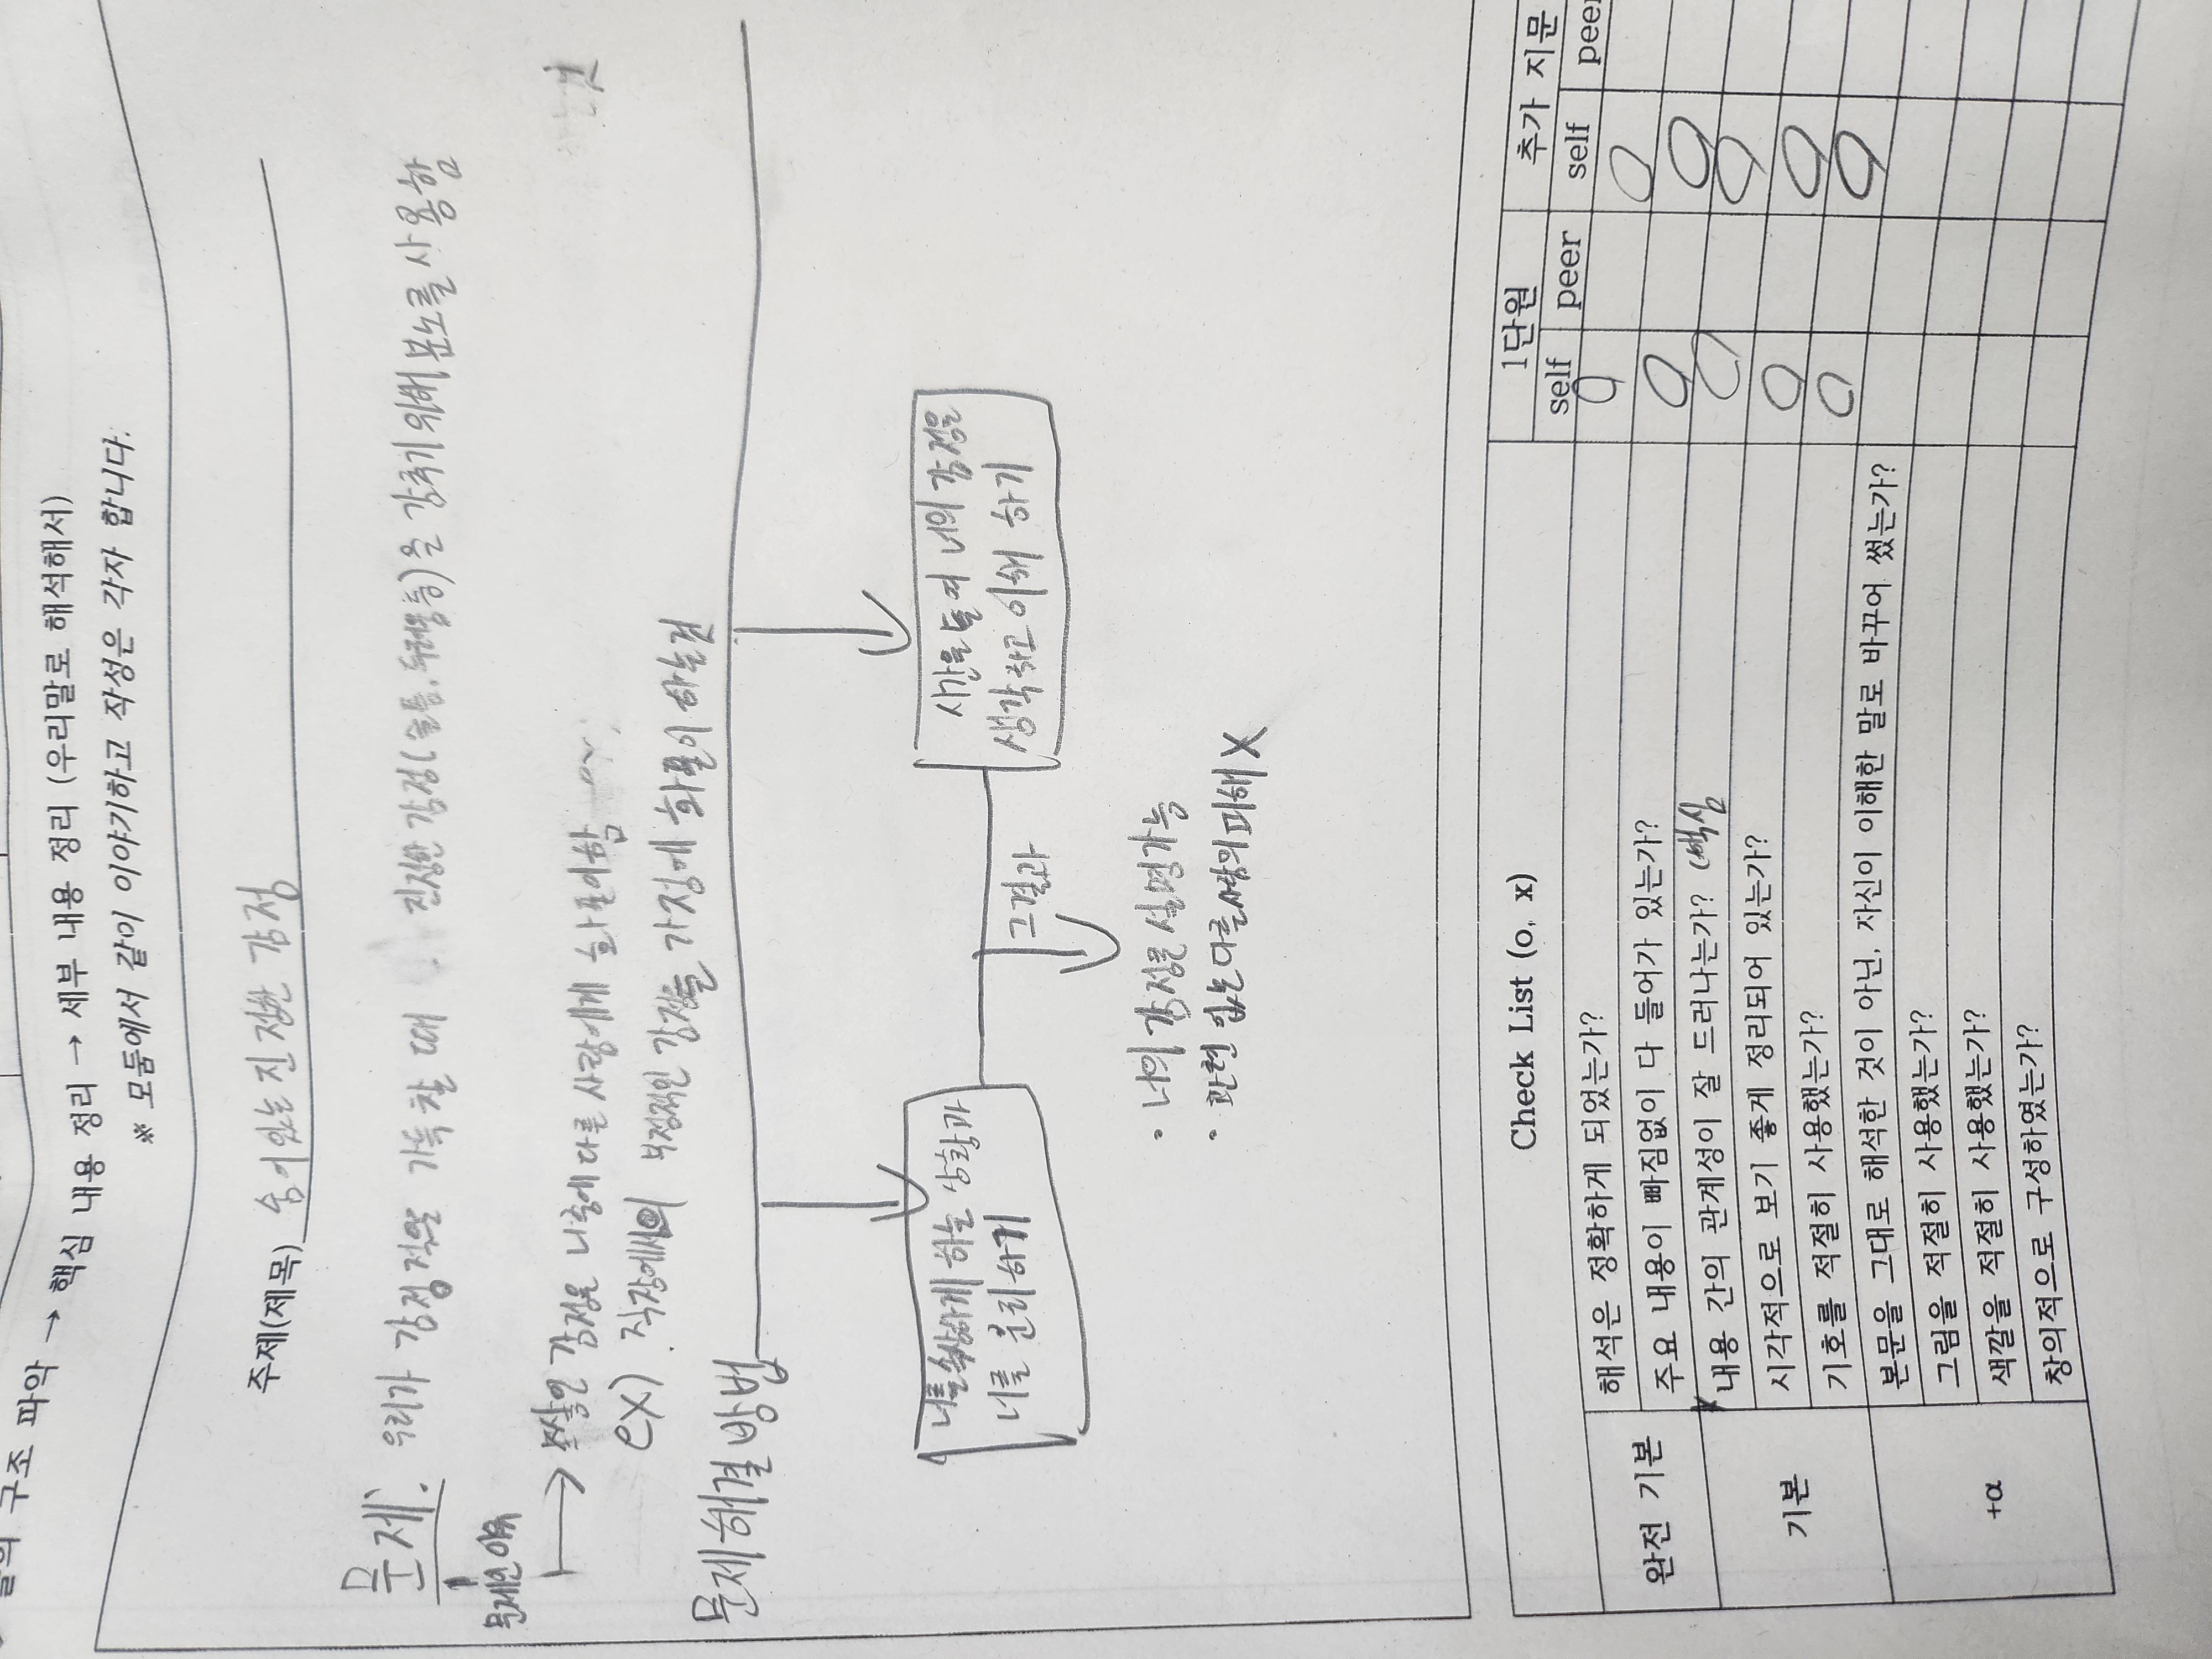 글의 구조 파악 → 핵심 내용 정리 → 세부 내용 정리 (우리말로 해석해서)
※ 모둠에서 같이 이야기하고 작성은 각자 합니다.
주제(제목) 숨어있는 진짜 감정
문제. 우리가 감정적으로 가득 찰 때 진짜 감정(슬픔, 두려움등)을 감추기 위해 분노를 사용함
문제인 이유
→ 쌓인 감정은 나중에 다른 사람에게 화풀이함
ex) 직장에서의 부정적인 감정을 가정에 화풀이 하는 것
문제해결방법
너를 속상하게 하는 상황과
너를 분리하기
시간을 들여 너의 감정을
생각하고 이해 하기
그결과
· 너의 감정을 설명가능
· 관련 없는 다른사람의 피해 X
Check List (o, x)
1단원
추가 지문
self peer self peer
완전 기본
해석은 정확하게 되었는가? O O
주요 내용이 빠짐없이 다 들어가 있는가? O O
기본
내용 간의 관계성이 잘 드러나는가? (핵심 O O
시각적으로 보기 좋게 정리되어 있는가? O O
기호를 적절히 사용했는가? O O
+α
본문을 그대로 해석한 것이 아닌, 자신이 이해한 말로 바꾸어 썼는가?
그림을 적절히 사용했는가?
색깔을 적절히 사용했는가?
창의적으로 구성하였는가?